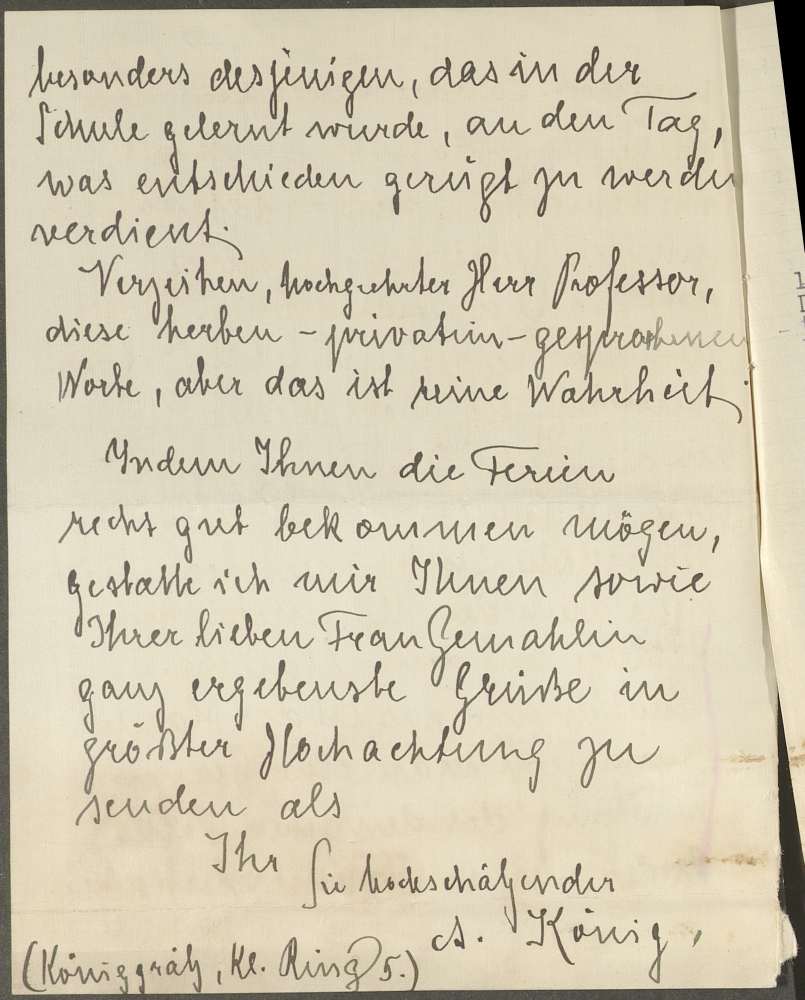 besonders desjenigen, das in der
Schule gelernt wurde, an den Tag,
was entschieden gerügt zu werden
verdient.
Verzeihen, hochgeehrter Herr Professor,
diese herben – privatim – gesprochenen
Worte, aber das ist reine Wahrheit.
Indem Ihnen die Ferien
recht gut bekommen mögen,
gestatte ich mir Ihnen sowie
Ihrer lieben Frau Gemahlin
ganz ergebenste Grüße in
größter Hochachtung zu
senden als
Ihr Sie hochschätzender
A. König,
(Königgrätz, Kl. Ring 5.)